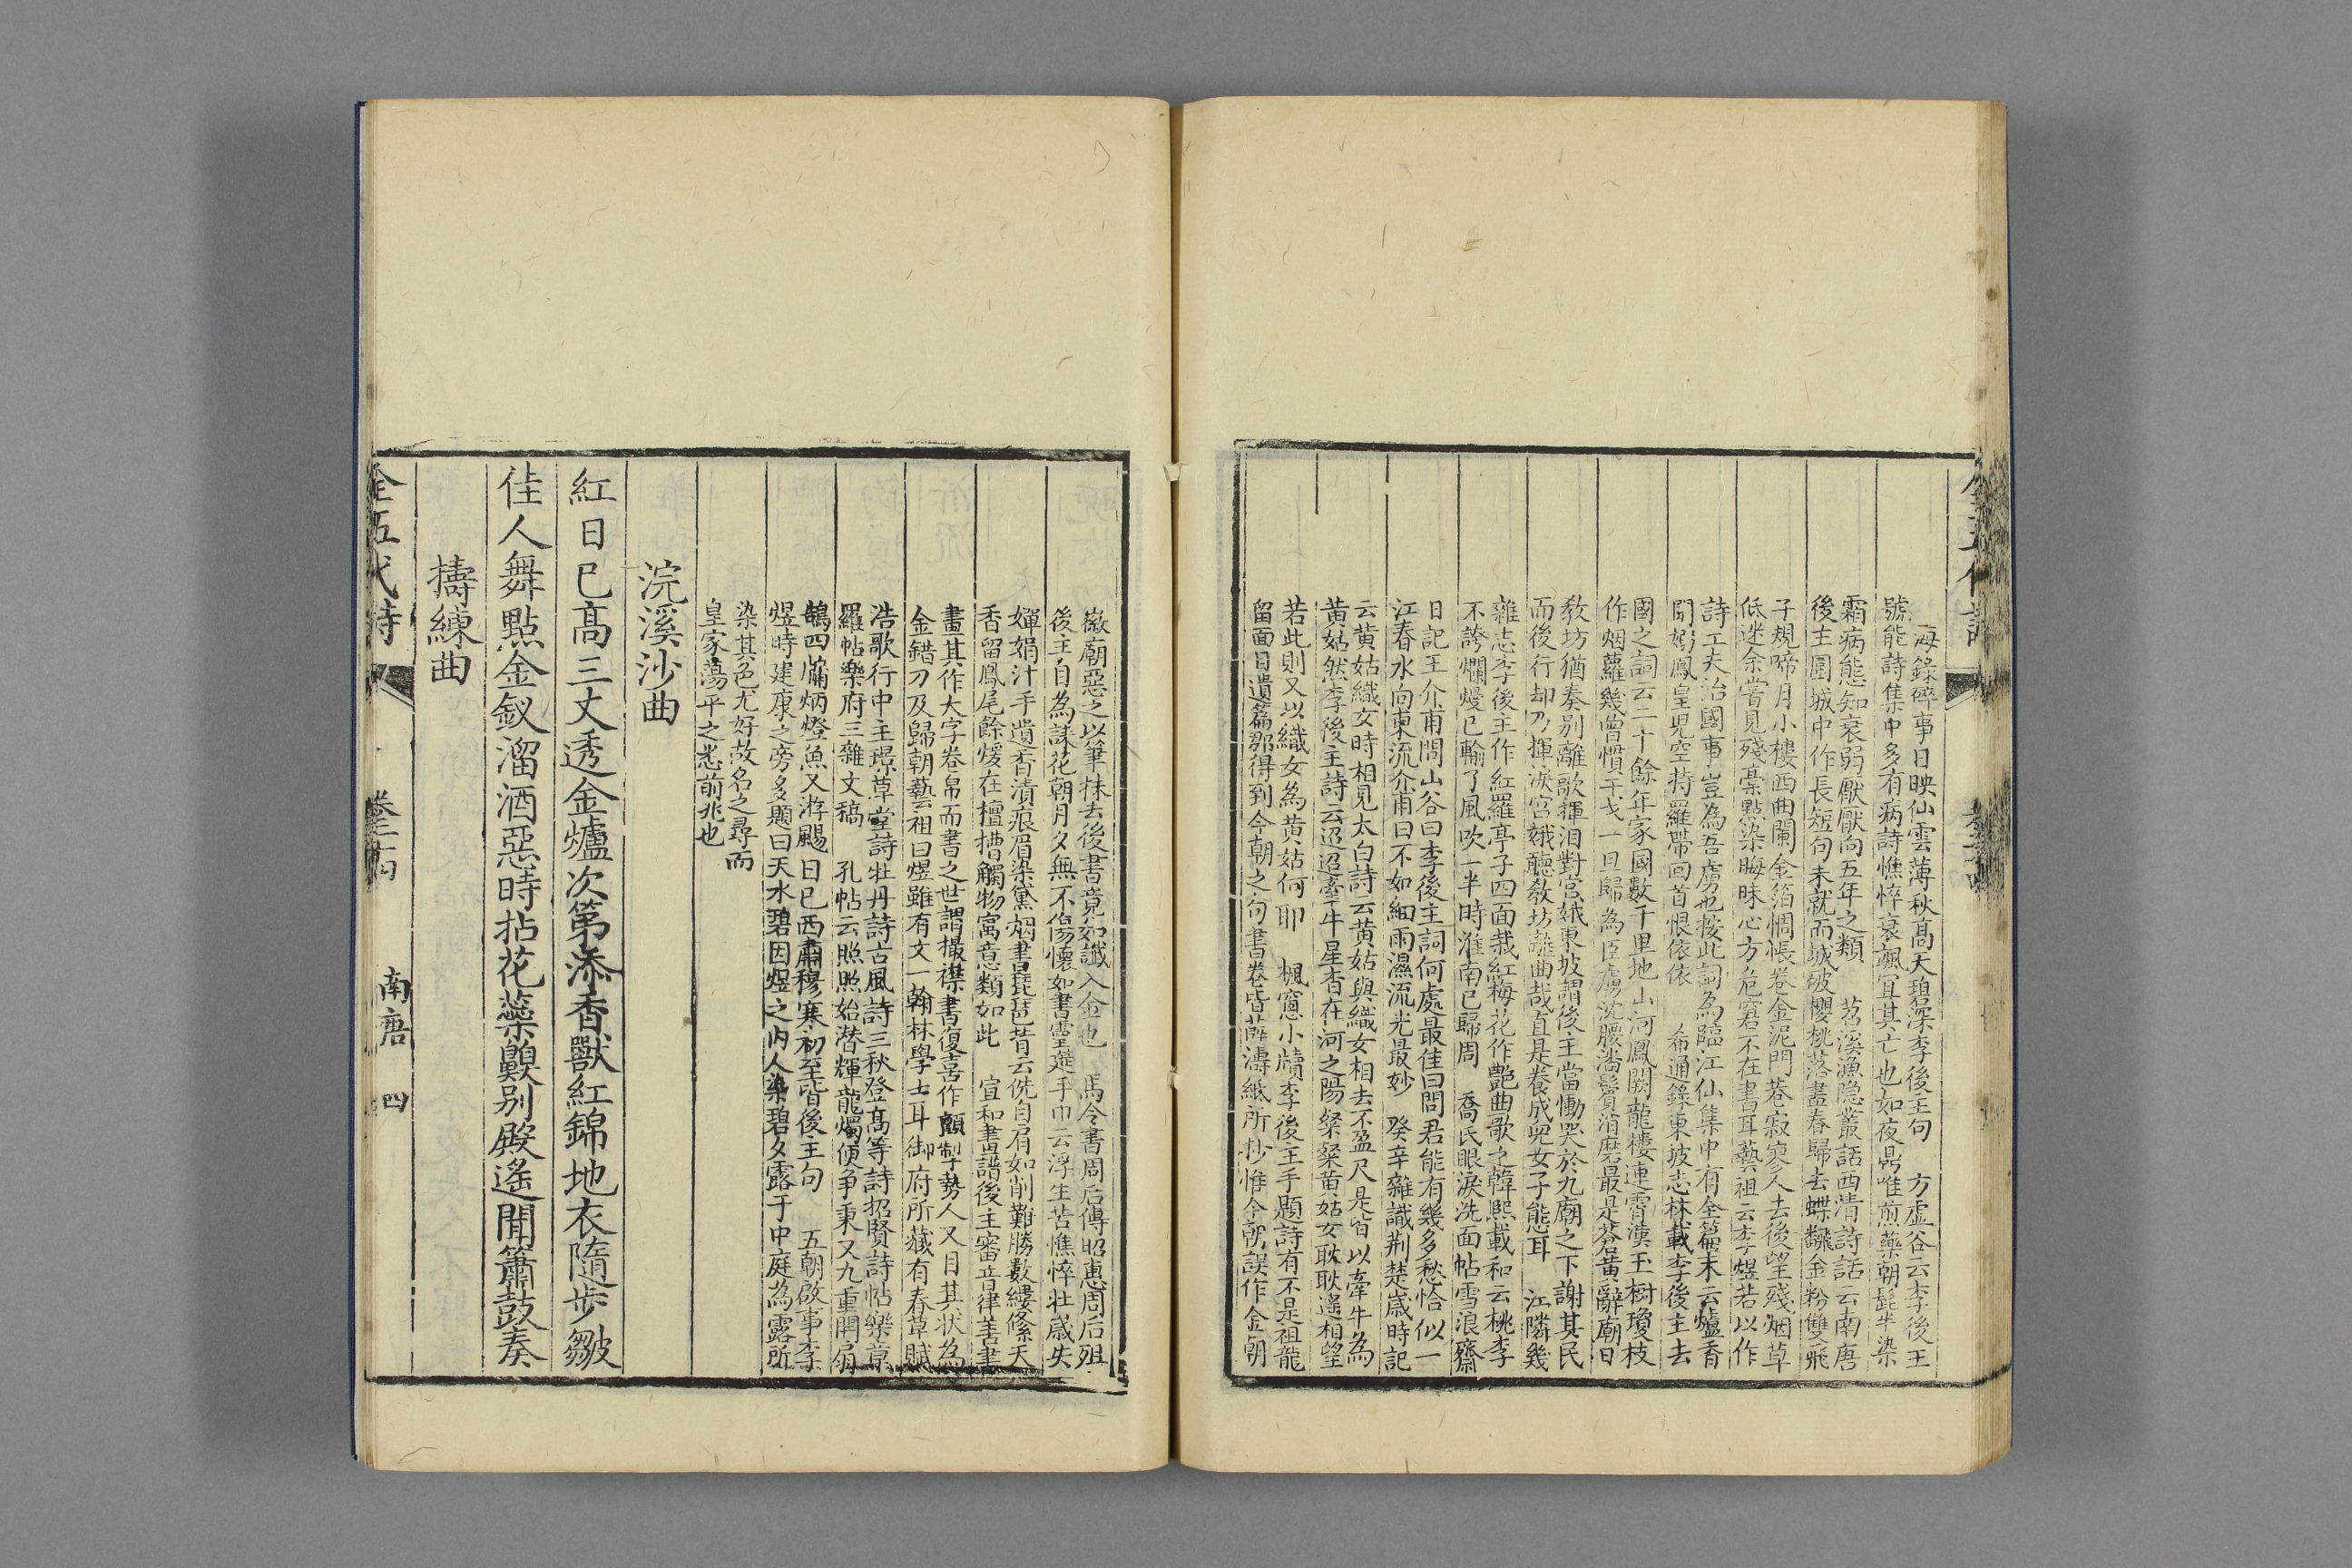 海錄碎事日映仙雲薄秋高天碧深李後主句　方虛谷云李後主
號能詩集中多有病詩憔悴衰颯宜其亡也如夜鼎唯煎藥朝髭半染
霜病態知衰弱厭厭向五年之類　苕溪漁隐叢話西清詩話云南唐
後主圍城中作長短句未就而城破櫻桃落盡春歸去蝶飜金粉雙飛
子規啼月小樓西曲闌金箔惆悵卷金泥門巷寂寥人去後望殘烟草
低迷余嘗見殘稾點染晦昧心方危窘不在書耳藝祖云李煜若以作
詩工夫治國事豈為吾虜也按此詞為臨江仙集中有全篇末云爐香
閒嫋鳳皇兒空持羅帶回首恨依依　希通錄東坡志林載李後主去
國之詞云二十餘年家國數千里地山河鳳闕龍樓連霄漢玉樹瓊枝
作烟蘿幾曾慣干戈一旦歸為臣虜沈腰潘鬢消磨最是蒼黃辭廟日
教坊猶奏别離歌揮泪對宮娥東坡謂後主當慟哭於九廟之下謝其民
而後行却乃揮淚宮娥聽教坊離曲哉直是養成兒女子能耳　江隣幾
雜志李後主作紅羅亭子四面栽紅梅花作艷曲歌之韓熙載和云桃李
不誇爛熳已輸了風吹一半時淮南已歸周　喬氏眼淚洗面帖雪浪齋
日記王介甫問山谷曰李後主詞何處最佳曰問君能有幾多愁恰似一
江春水向東流介甫曰不如細雨濕流光最妙　癸辛雜識荆楚嵗時記
云黄姑織女時相見太白詩云黄姑與織女相去不盈尺是皆以牽牛為
黄姑然李後主詩云迢迢牽牛星杳在河之陽粲粲黄姑女耿耿遙相望
若此則又以織女為黄姑何耶　楓窻小牘李後主手題詩有不是祖龍
留面目遺篇那得到今朝之句書卷皆薛濤紙所抄惟今朝誤作金朝
徽廟惡之以筆抹去後書竟如讖入金也　馬令書周后傳昭惠周后殂
後主自為誄花朝月夕無不傷懷如書靈筵手巾云浮生苦憔悴壯嵗失
嬋娟汁手遺香漬痕眉染黛烟書琵琶背云侁自肩如削難勝數縷絛天
香留鳳尾餘煖在檀槽觸物寓意類如此　宣和書譜後主審音律善書
畫其作大字卷帛而書之世謂撮襟書復喜作顫掣勢人又目其状為
金錯刀及歸朝藝祖曰煜雖有文一翰林學士耳御府所藏有春草賦
浩歌行中主璟草堂詩牡丹詩古風詩三秋登高等詩招賢詩帖樂章
羅帖樂府三雜文稿　孔帖云熙熙始潜輝龍燭便争秉又九重開扇
鵠四牖炳燈魚又游颺日已西肅穆寒初至皆後主句　五朝啟事李
煜時建康之旁多題曰天水碧因煜之内人染碧夕露于中庭為露所
染其色尤好故名之尋而
皇家蕩平之悉前兆也
浣溪沙曲
紅日已高三丈透金爐次第添香獸紅錦地衣隨步皺
佳人舞點金釵溜酒惡時拈花蘂齅别殿遙聞簫鼓奏
擣練曲
全五代詩　卷三十四　南唐　四